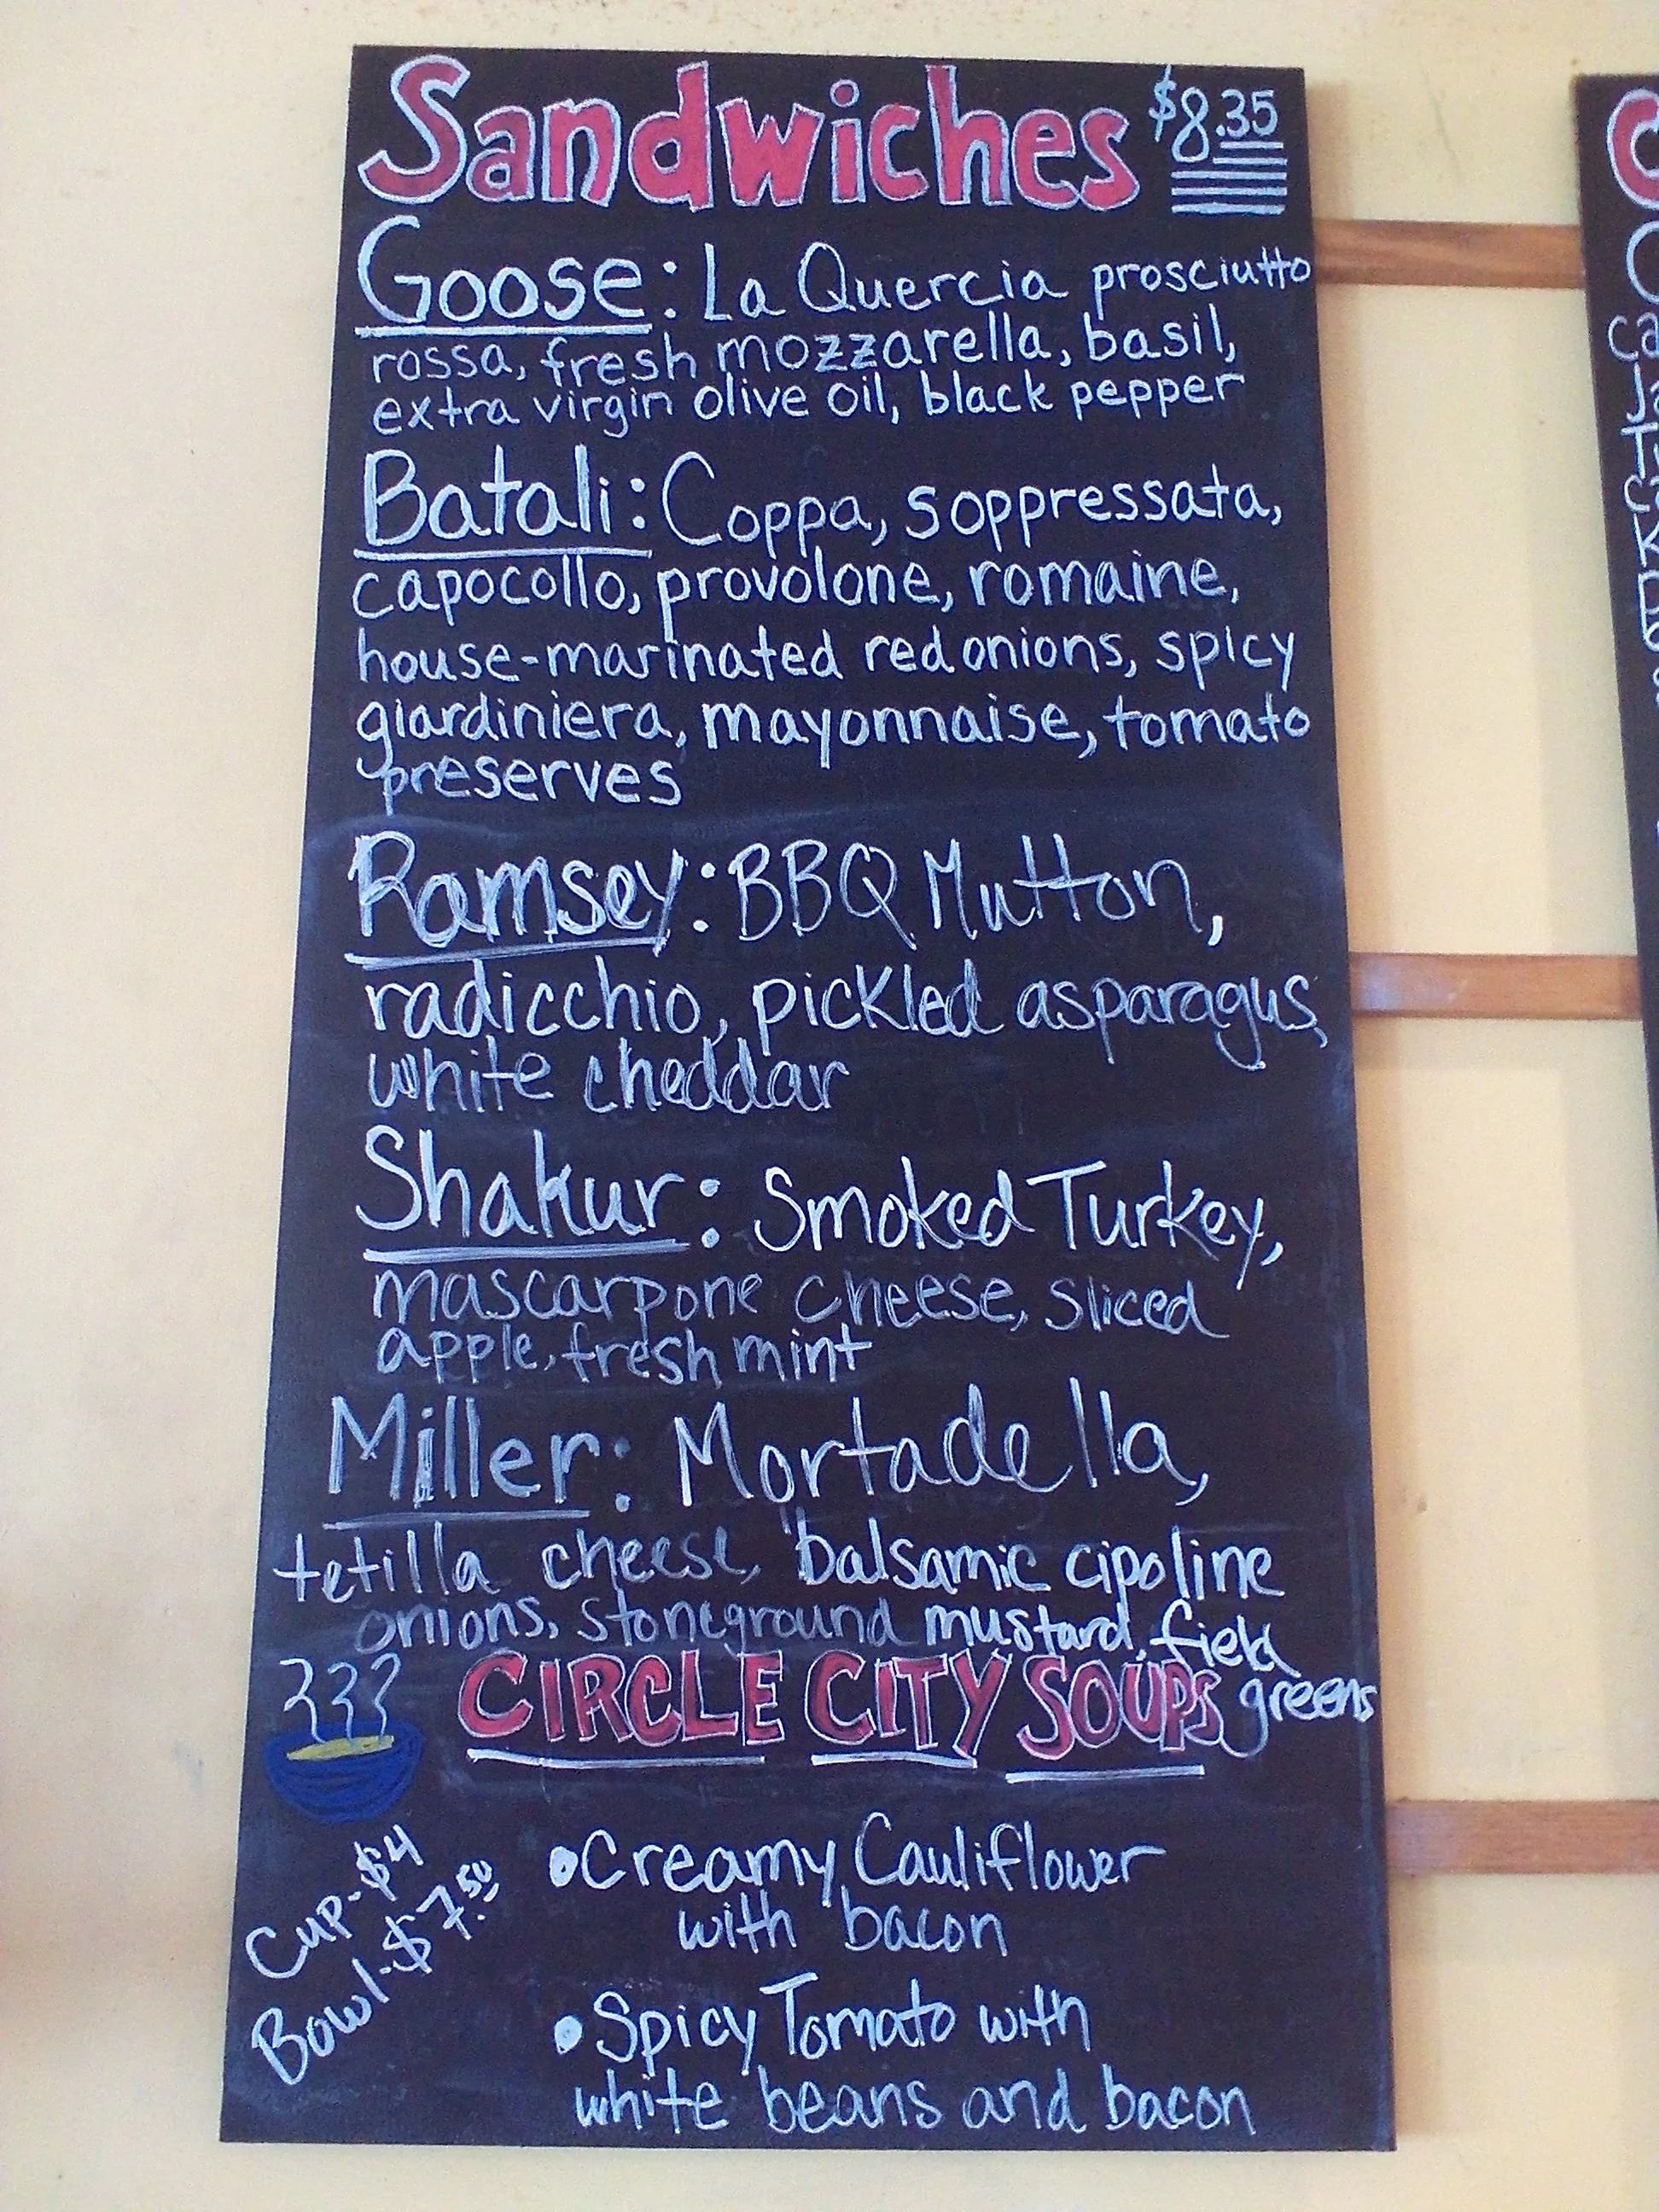 Sandwiches $8.35
Goose: La Quercia prosciutto
rossa, fresh mozzarella, basil,
extra virgin olive oil, black pepper
Batali: Coppa, soppressata,
capocollo, provolone, romaine,
house-marinated red onions, spicy
giardiniera, mayonnaise, tomato
preserves
Ramsey: BBQ Mutton,
radicchio, pickled asparagus,
white cheddar
Shakur: Smoked Turkey,
mascarpone cheese, sliced
apple, fresh mint
Miller: Mortadella,
tetilla cheese, balsamic cipoline
onions, stoneground mustard, field
greens
CIRCLE CITY SOUPS
Cup-$4
Bowl-$7.50
•Creamy Cauliflower
with bacon
•Spicy Tomato with
white beans and bacon